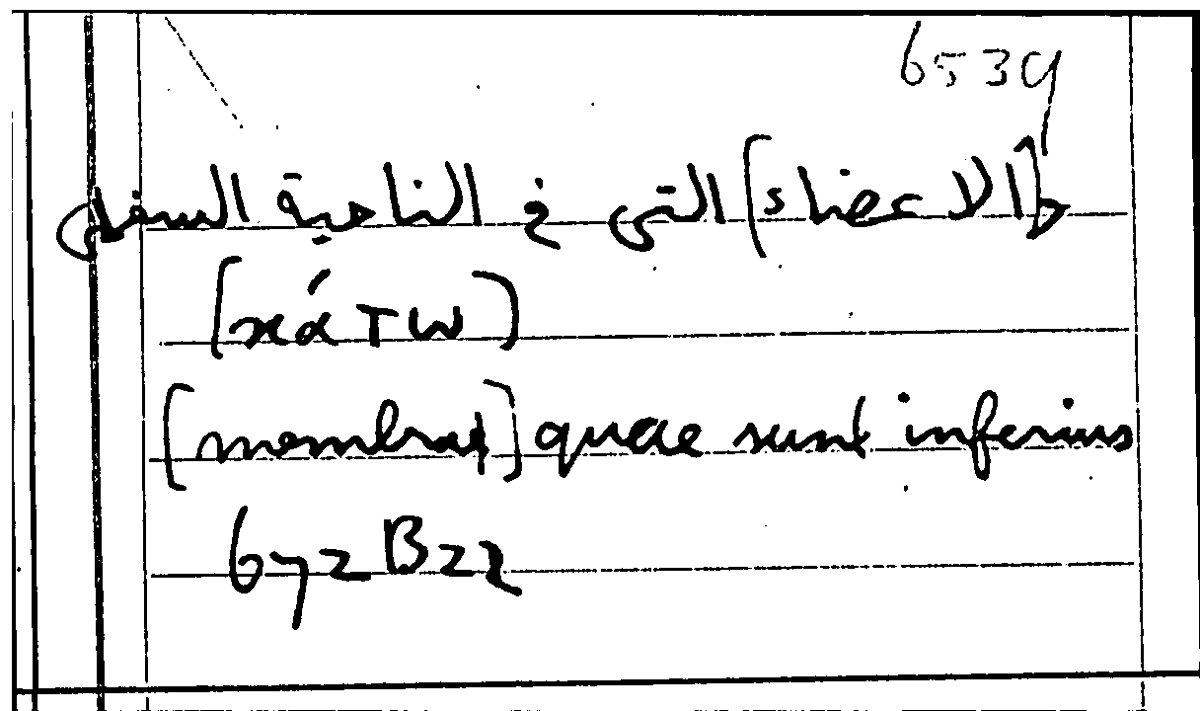 6539
[الاعضاء] التى فى الناحية السفلى
[κάτω]
[membra] quae sunt inferius
672 B 22